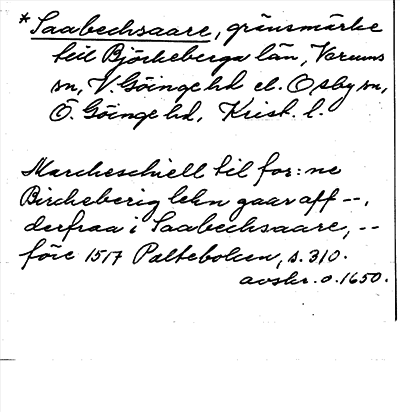 *Saabechsaare, gränsmärke
till Björkeberga län, Verums
sn, V. Göinge hd el. Osby sn,
Ö. Göinge hd, Krist. l.
Marcheschiell til for:ne
Bircheberig lehn gaar aff --,
derfraa i Saabechsaare, --
före 1517 Palteboken, s. 310.
avskr. o. 1650.